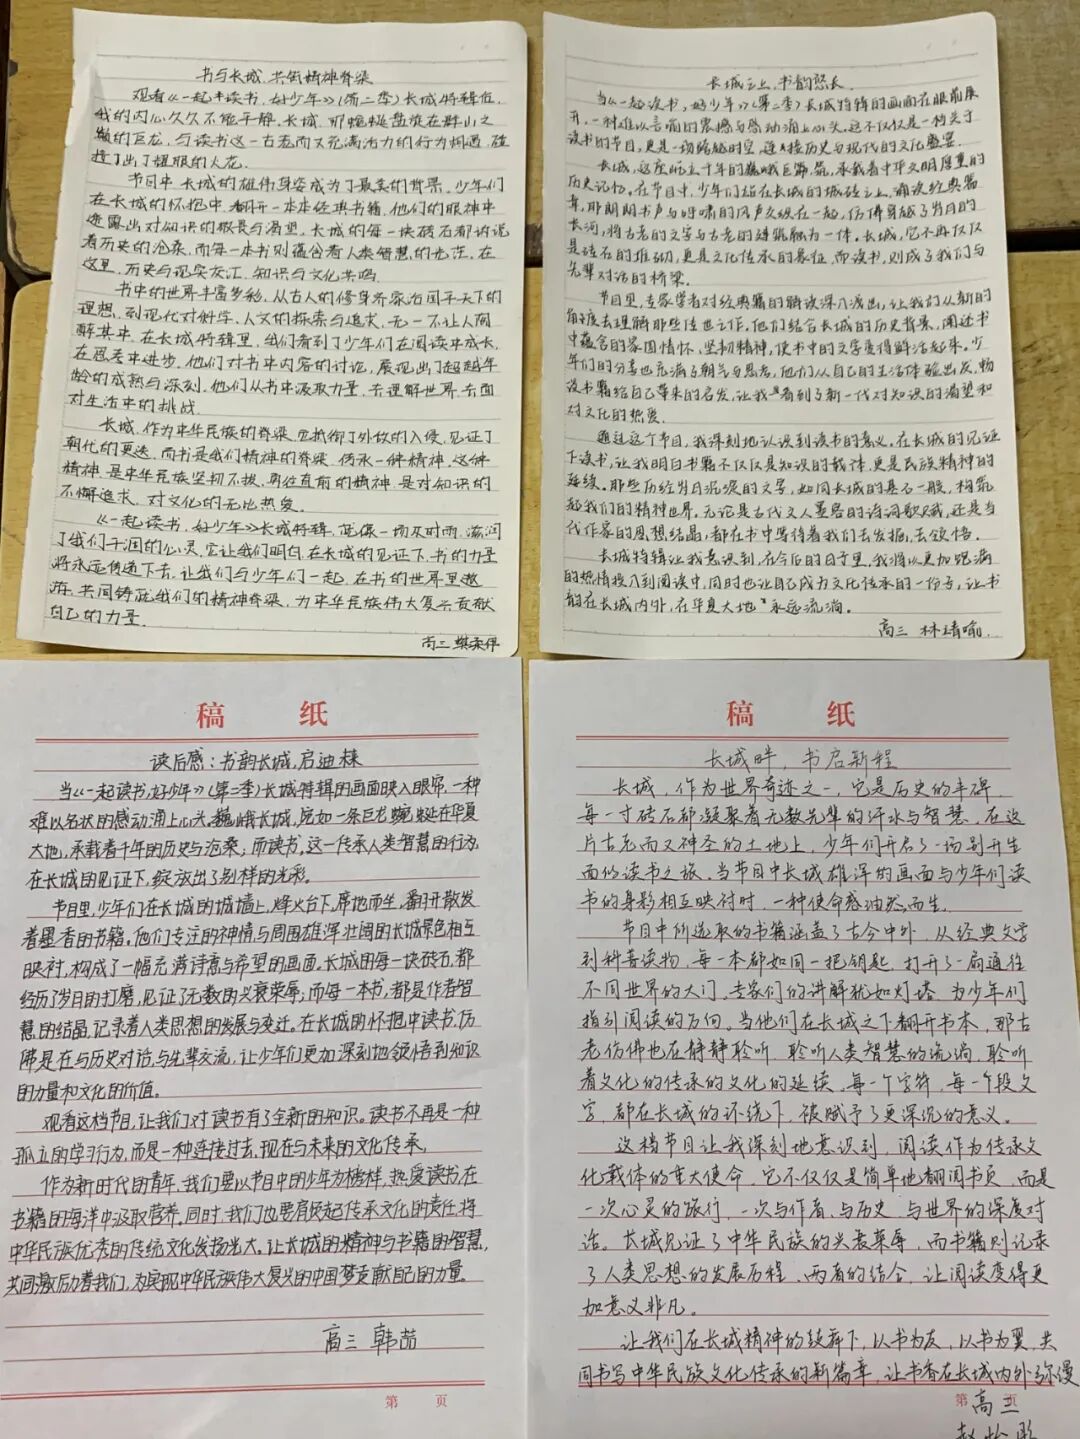 书与长城,共铸精神脊梁
观看《一起读书,好少年》(第二季)长城特辑后,
我的内心久久不能平静。长城,那蜿蜒盘旋在群山之
巅的巨龙,与读书这一古老而又充满活力的行为相遇,碰
撞了出了耀眼的火花。
节目中,长城的雄伟身姿成为了最美的背景,少年们
在长城的怀抱中,翻开一本本经典书籍,他们的眼神中
透露出对知识的敬畏与渴望。长城的每一块砖石都诉说
着历史的沧桑,而每一本书则蕴含着人类智慧的光芒。在
这里,历史与现实交汇,知识与文化共鸣。
书中的世界丰富多彩,从古人的修身齐家治国平天下的
理想,到现代对科学、人文的探索与追求,无一不让人陶
醉其中。在长城特辑里,我们看到了少年们在阅读中成长,
在思考中进步。他们对书中内容的讨论,展现出了超越年
龄的成熟与深刻。他们从书中汲取力量,去理解世界,去面
对生活中的挑战。
长城,作为中华民族的脊梁,抵御了外敌的入侵,见证了
朝代的更迭。而书是我们精神的脊梁,传承一种精神。这种
精神,是中华民族坚韧不拔、勇往直前的精神,是对知识的
不懈追求、对文化的无比热爱。
《一起读书,好少年》长城特辑,就像一场及时雨,滋润
了我们干涸的心灵。它让我们明白,在长城的见证下,书的力量
将永远传递下去。让我们与少年们一起,在书的世界里遨
游,共同铸就我们的精神脊梁,为中华民族伟大复兴贡献
自己的力量。
高三
长城之上,书韵悠长
当《一起读书,好少年》(第二季)长城特辑的画面在眼前展
开,一种难以言喻的震撼与感动涌上心头。这不仅仅是一档关于
读书的节目,更是一场跨越时空,连接历史与现代的文化盛宴。
长城,这座屹立千年的巍峨巨龙,承载着中华文明厚重的
历史记忆。在节目中,少年们站在长城的城砖之上,诵读经典篇
章,那朗朗书声与呼啸的风声交织在一起,仿佛穿越了岁月的
长河,将古老的文字与古老的建筑融为一体。长城,它不再仅仅
是砖石的堆砌,更是文化传承的象征,而读书,则成了我们与
先辈对话的桥梁。
节目里,专家学者对经典籍的解读深入浅出,让我们从新的
角度去理解那些传世之作。他们结合长城的历史背景,阐述书
中蕴含的家国情怀,坚韧精神,使书中的文字变得鲜活起来。少
年们的分享也充满了朝气与思考,他们从自己的生活体验出发,畅
谈书籍给自己带来的启发,让我看到了新一代对知识的渴望和
对文化的热爱。
通过这个节目,我深刻地认识到读书的意义。在长城的见证
下读书,让我明白书籍不仅仅是知识的载体,更是民族精神的
延续。那些历经岁月沉淀的文字,如同长城的基石一般,构筑
起我们的精神世界。无论是古代文人墨客的诗词歌赋,还是当
代作家的思想结晶,都在书中等待着我们去发掘,去领悟。
长城特辑让我意识到,在今后的日子里,我将以更加饱满
的热情投入到阅读中,同时也让自己成为文化传承的一份子,让书
韵在长城内外,在华夏大地永远流淌。
高三 林靖喻
稿 纸
读后感:书韵长城,启迪未来
当《一起读书,好少年》(第二季)长城特辑的画面映入眼帘,一种
难以名状的感动涌上心头。巍峨长城,宛如一条巨龙蜿蜒在华夏
大地,承载着千年的历史与沧桑;而读书,这一传承人类智慧的行为,
在长城的见证下,绽放出了别样的光彩。
节目里,少年们在长城的城墙上,烽火台下,席地而坐,翻开散发
着墨香的书籍。他们专注的神情与周围雄浑壮阔的长城景色相互
映衬,构成了一幅充满诗意与希望的画面。长城的每一块砖石,都
经历了岁月的打磨,见证了无数的兴衰荣辱;而每一本书,都是作者智
慧的结晶,记录着人类思想的发展与变迁。在长城的怀抱中读书,仿
佛是在与历史对话,与先辈交流,让少年们更加深刻地领悟到知识
的力量和文化的价值。
观看这档节目,让我们对读书有了全新的知识。读书不再是一种
孤立的学习行为,而是一种连接过去,现在与未来的文化传承。
作为新时代的青年,我们要以节目中的少年为榜样,热爱读书,在
书籍的海洋中汲取营养。同时,我们也要肩负起传承文化的责任,将
中华民族优秀的传统文化发扬光大。让长城的精神与书籍的智慧,
共同激励着我们,为实现中华民族伟大复兴的中国梦贡献自己的力量。
高三 韩喆
第 页
稿 纸
长城畔,书启新程
长城,作为世界奇迹之一,它是历史的丰碑,
每一寸砖石都凝聚着无数先辈的汗水与智慧,在这
片古老而又神圣的土地上,少年们开启了一场别开生
面的读书之旅,当节目中长城雄浑的画面与少年们读
书的身影相互映衬时,一种使命感油然而生。
节目中所选取的书籍涵盖了古今中外,从经典文学
到科普读物,每一本都如同一把钥匙,打开了一扇通往
不同世界的大门,专家们的讲解犹如灯塔,为少年们
指引阅读的方向,当他们在长城之下翻开书本,那古
老仿佛也在静静聆听,聆听人类智慧的流淌,聆听
着文化的传承的文化的延续,每一个字符,每一个段文
字,都在长城的环绕下,被赋予了更深沉的意义。
这档节目让我深刻地意识到,阅读作为传承文
化载体的重大使命,它不仅仅是简单地翻阅书页,而是
一次心灵的旅行,一次与作者、与历史、与世界的深度对
话。长城见证了中华民族的兴衰荣辱,而书籍则记录
了人类思想的发展历程,两者的结合,让阅读变得更
加意义非凡。
让我们在长城精神的鼓舞下,以书为友,以书为翼,共
同书写中华民族文化传承的新篇章,让书香在长城内外弥漫
第 页
高三